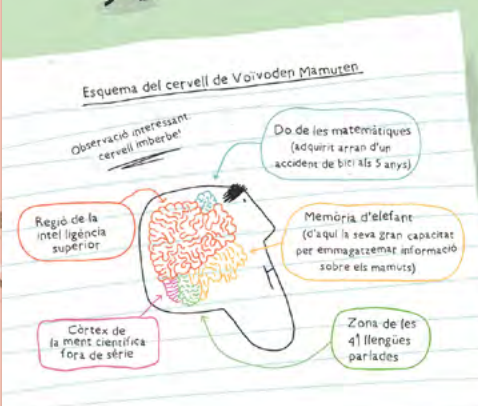 Esquema del cervell de Voïvoden Mamuten
Observació interessant
cervell imberbe!
Do de les matemàtiques
(adquirit arran d'un
accident de bici als 5 anys)
Regió de la
intel·ligència
superior
Memòria d'elefant
(d'aquí la seva gran capacitat
per emmagatzemar informació
sobre els mamuts)
Còrtex de
la ment científica
fora de sèrie
Zona de les
41 llengües
parlades